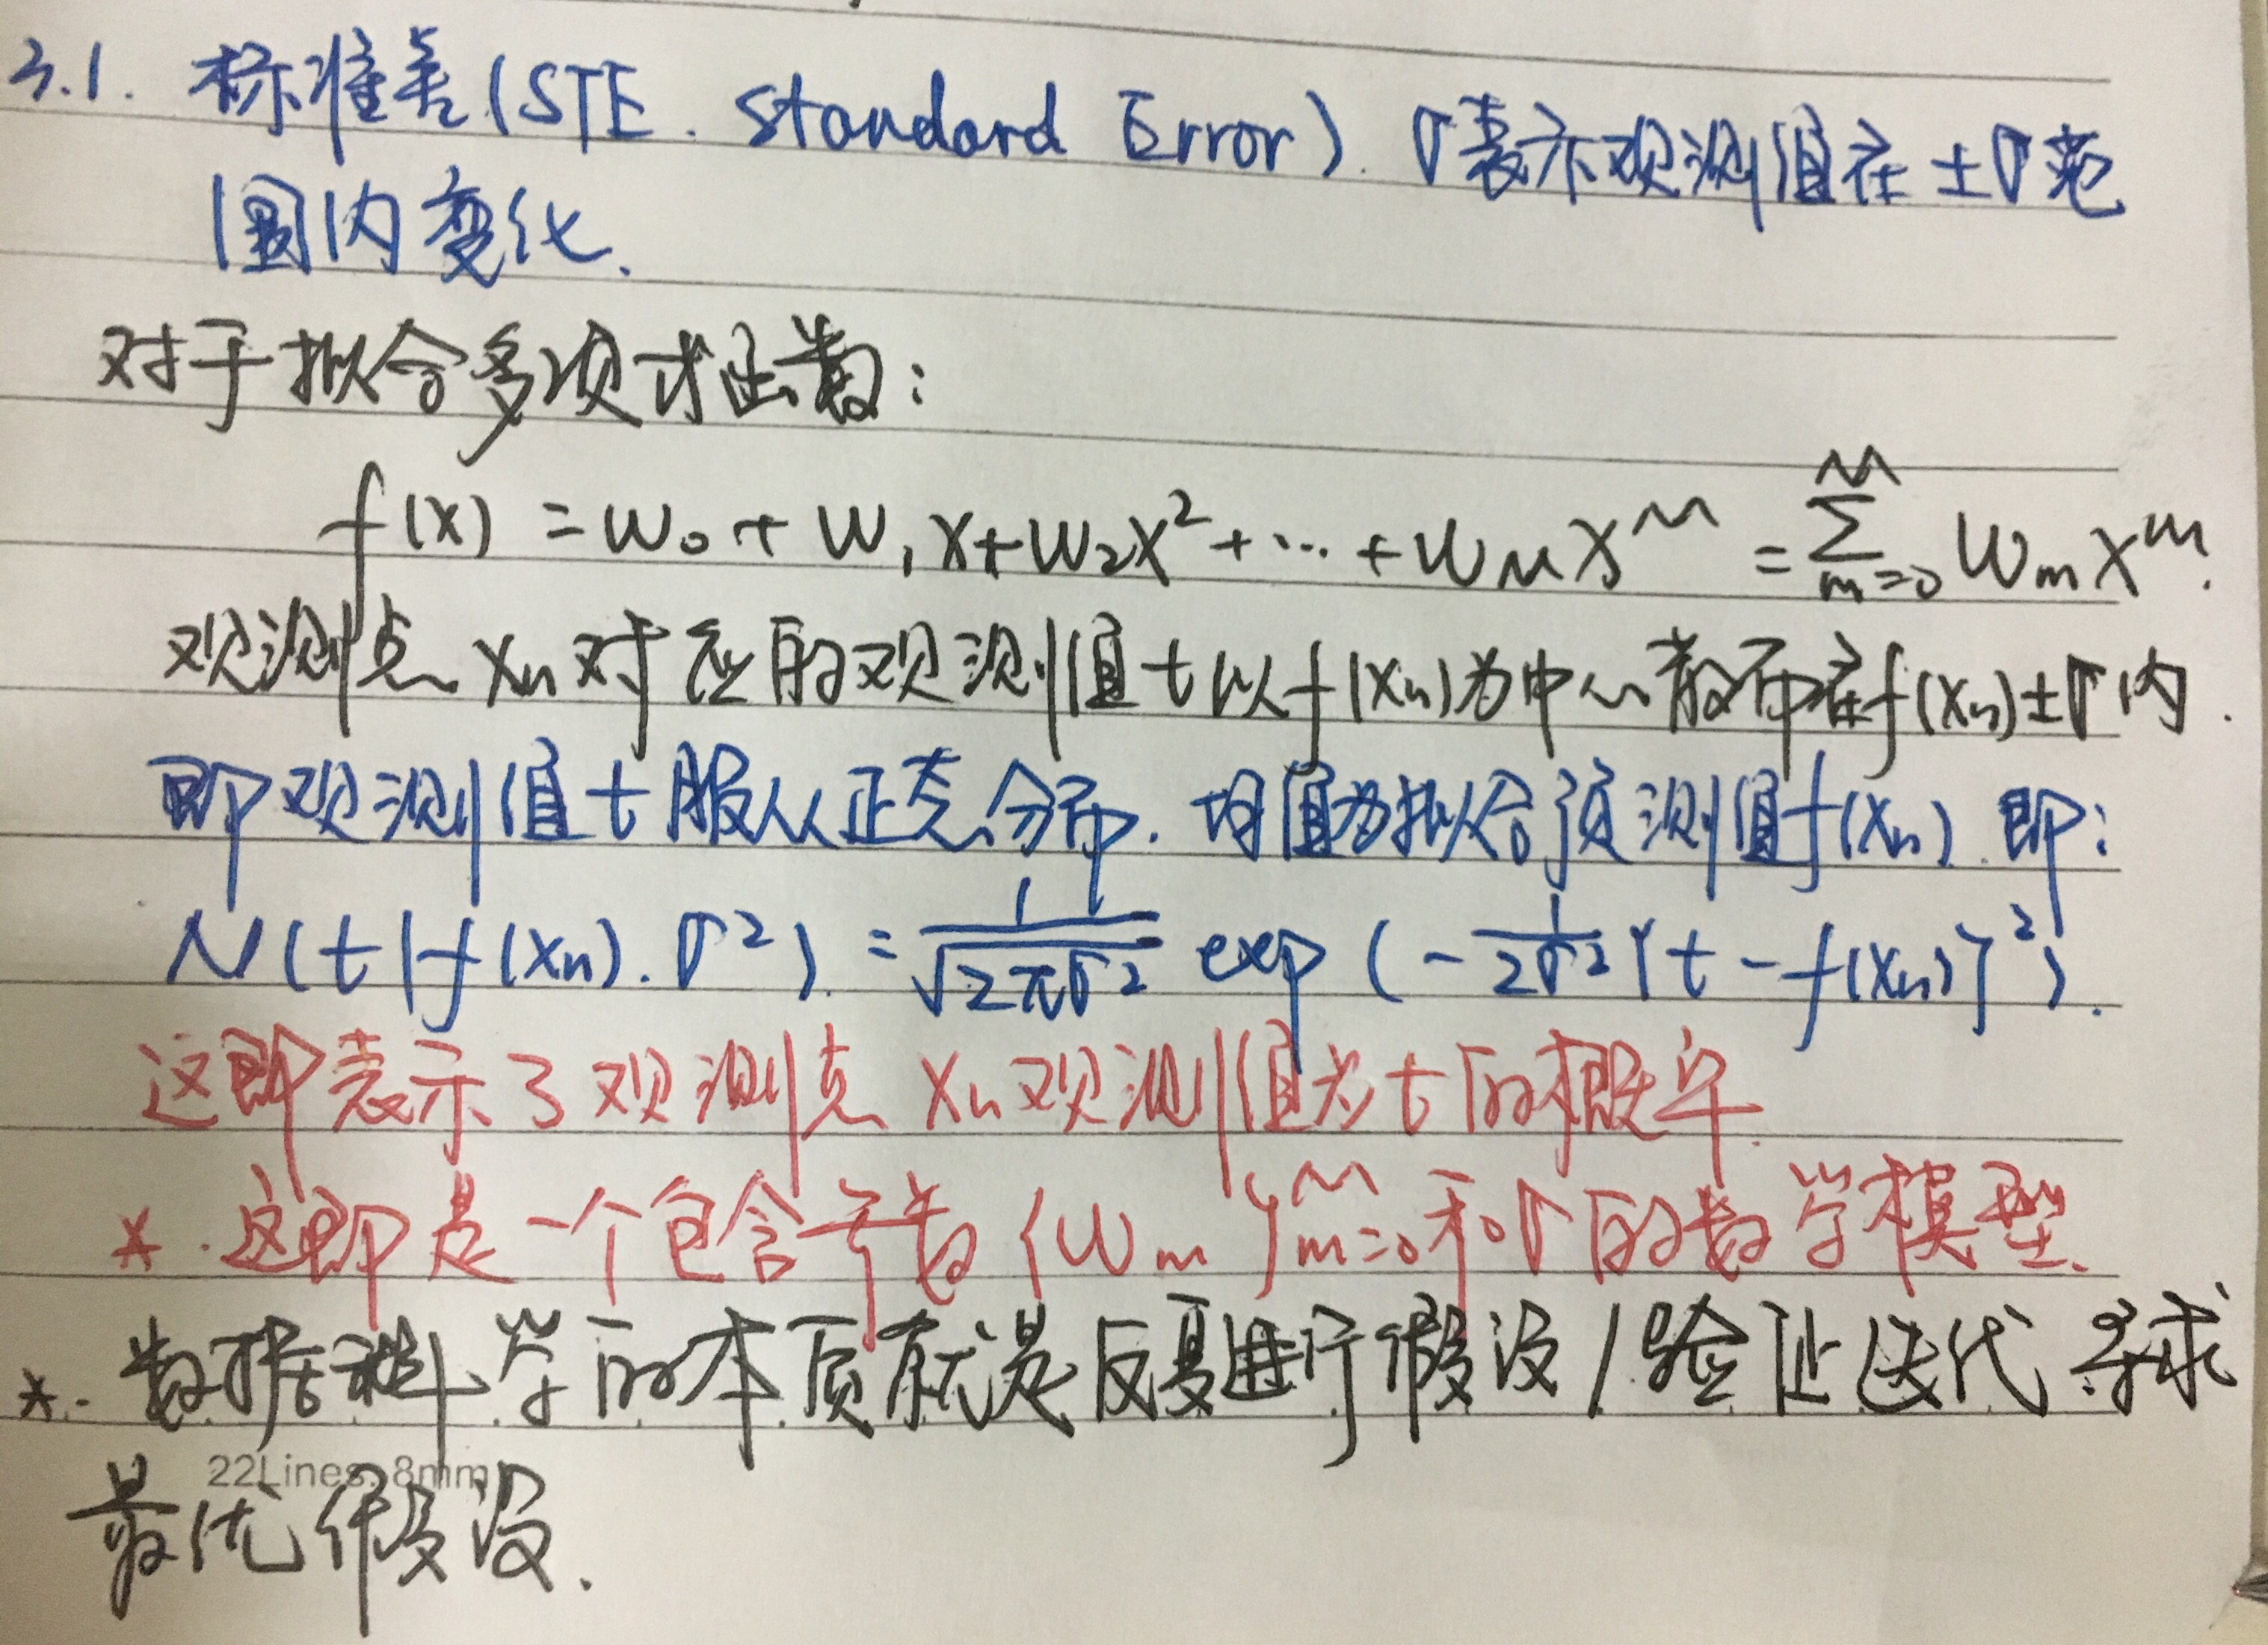 3.1. 标准差(STE. Standard Error). σ表示观测值在±σ范
围内变化.
对于拟合多项式函数:
f(x) = w₀ + w₁x + w₂x² + ··· + w_M x^M = Σ_{m=0}^{M} w_m x^m.
观测点 xₙ 对应的观测值 t 以 f(xₙ) 为中心散布在 f(xₙ)±σ 内.
即观测值 t 服从正态分布. 均值为拟合预测值 f(xₙ). 即:
N(t|f(xₙ). σ²). = 1/√(2πσ²) exp(-1/(2σ²){t - f(xₙ)}²).
这即表示了观测点 xₙ 观测值为 t 的概率.
*. 这即是一个包含参数 {w_m}_{m=0}^{M} 和 σ 的数学模型.
*. 数据科学的本质就是反复进行假设/验证迭代. 寻求
22Lines. 8mm
最优假设.